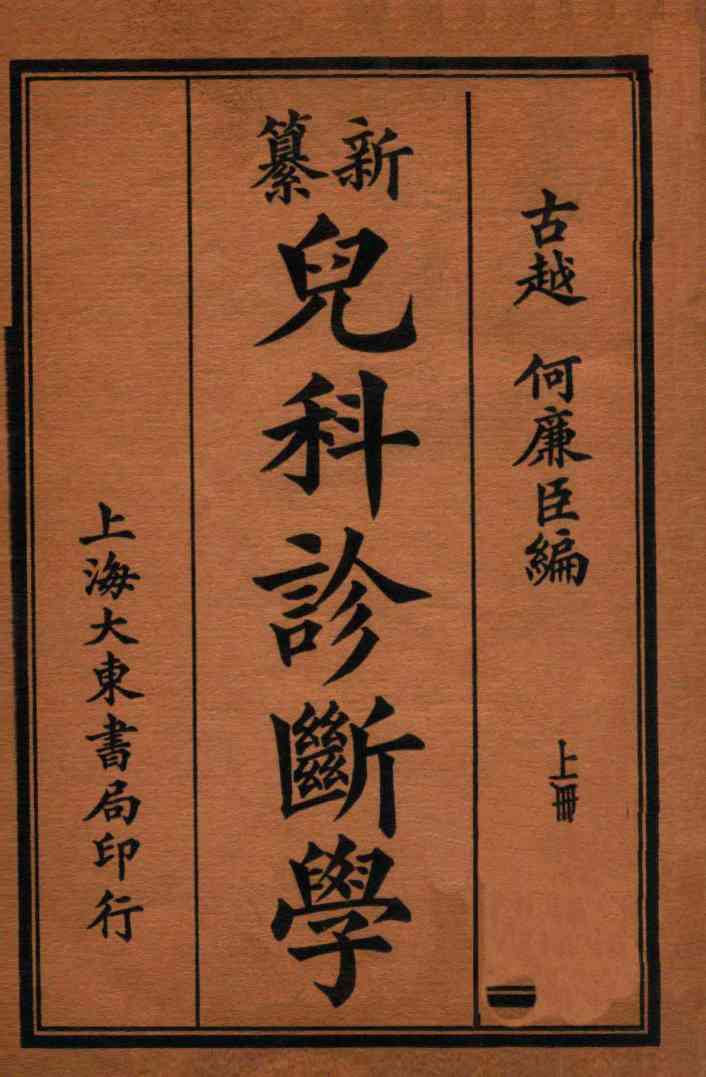 古越 何廉臣編
上冊
新纂
兒科診斷學
上海大東書局印行